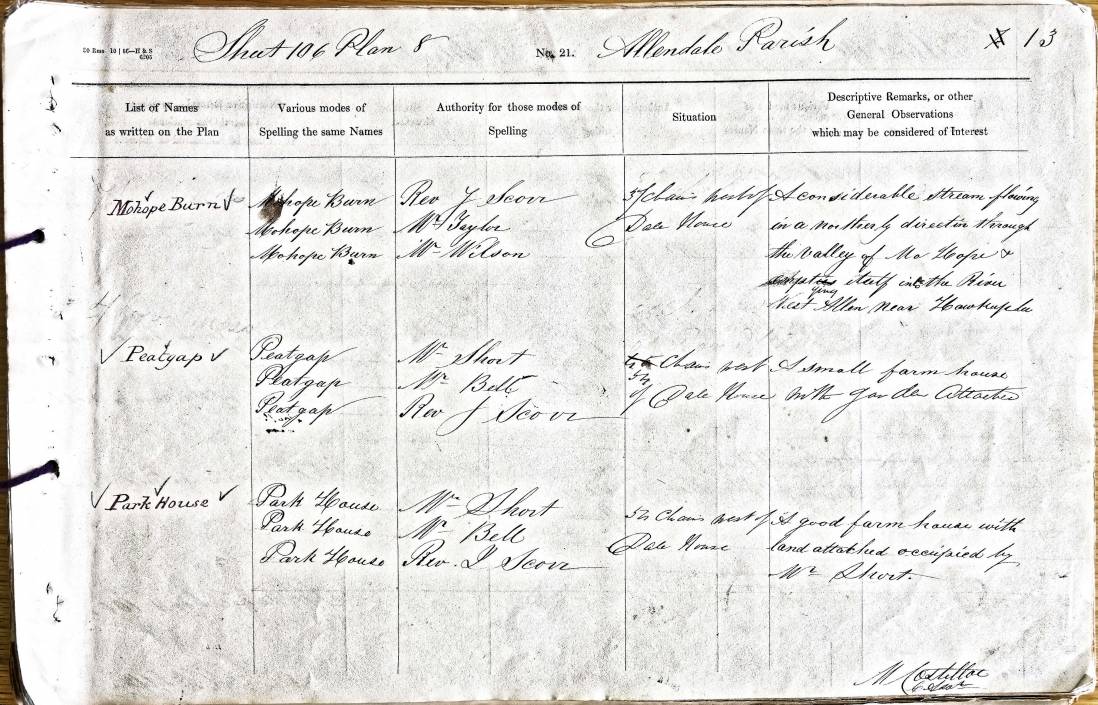 20 Rms. 10 | 56—H & S
6205
Sheet 106 Plan 8
No. 21.
Allendale Parish
13
List of Names
as written on the Plan
Various modes of
Spelling the same Names
Authority for those modes of
Spelling
Situation
Descriptive Remarks, or other
General Observations
which may be considered of Interest
Mohope Burn
Mohope Burn
Mohope Burn
Mohope Burn
Rev J Scorr
Mr Taylor
Mr Wilson
57 Chains west of
Dale House
A considerable stream flowing
in a northerly direction through
the valley of Mo Hope &
itself into the River
West Allen near
Peatgap
Peatgap
Peatgap
Peatgap
Mr Short
Mr Bell
Rev J Scorr
Chains west
of Dale House
A small farm house
with garden attached
Park House
Park House
Park House
Park House
Mr Short
Mr Bell
Rev. J Scorr
Chains west of
Dale House
A good farm house with
land attached occupied by
Mr Short.
M Costelloe